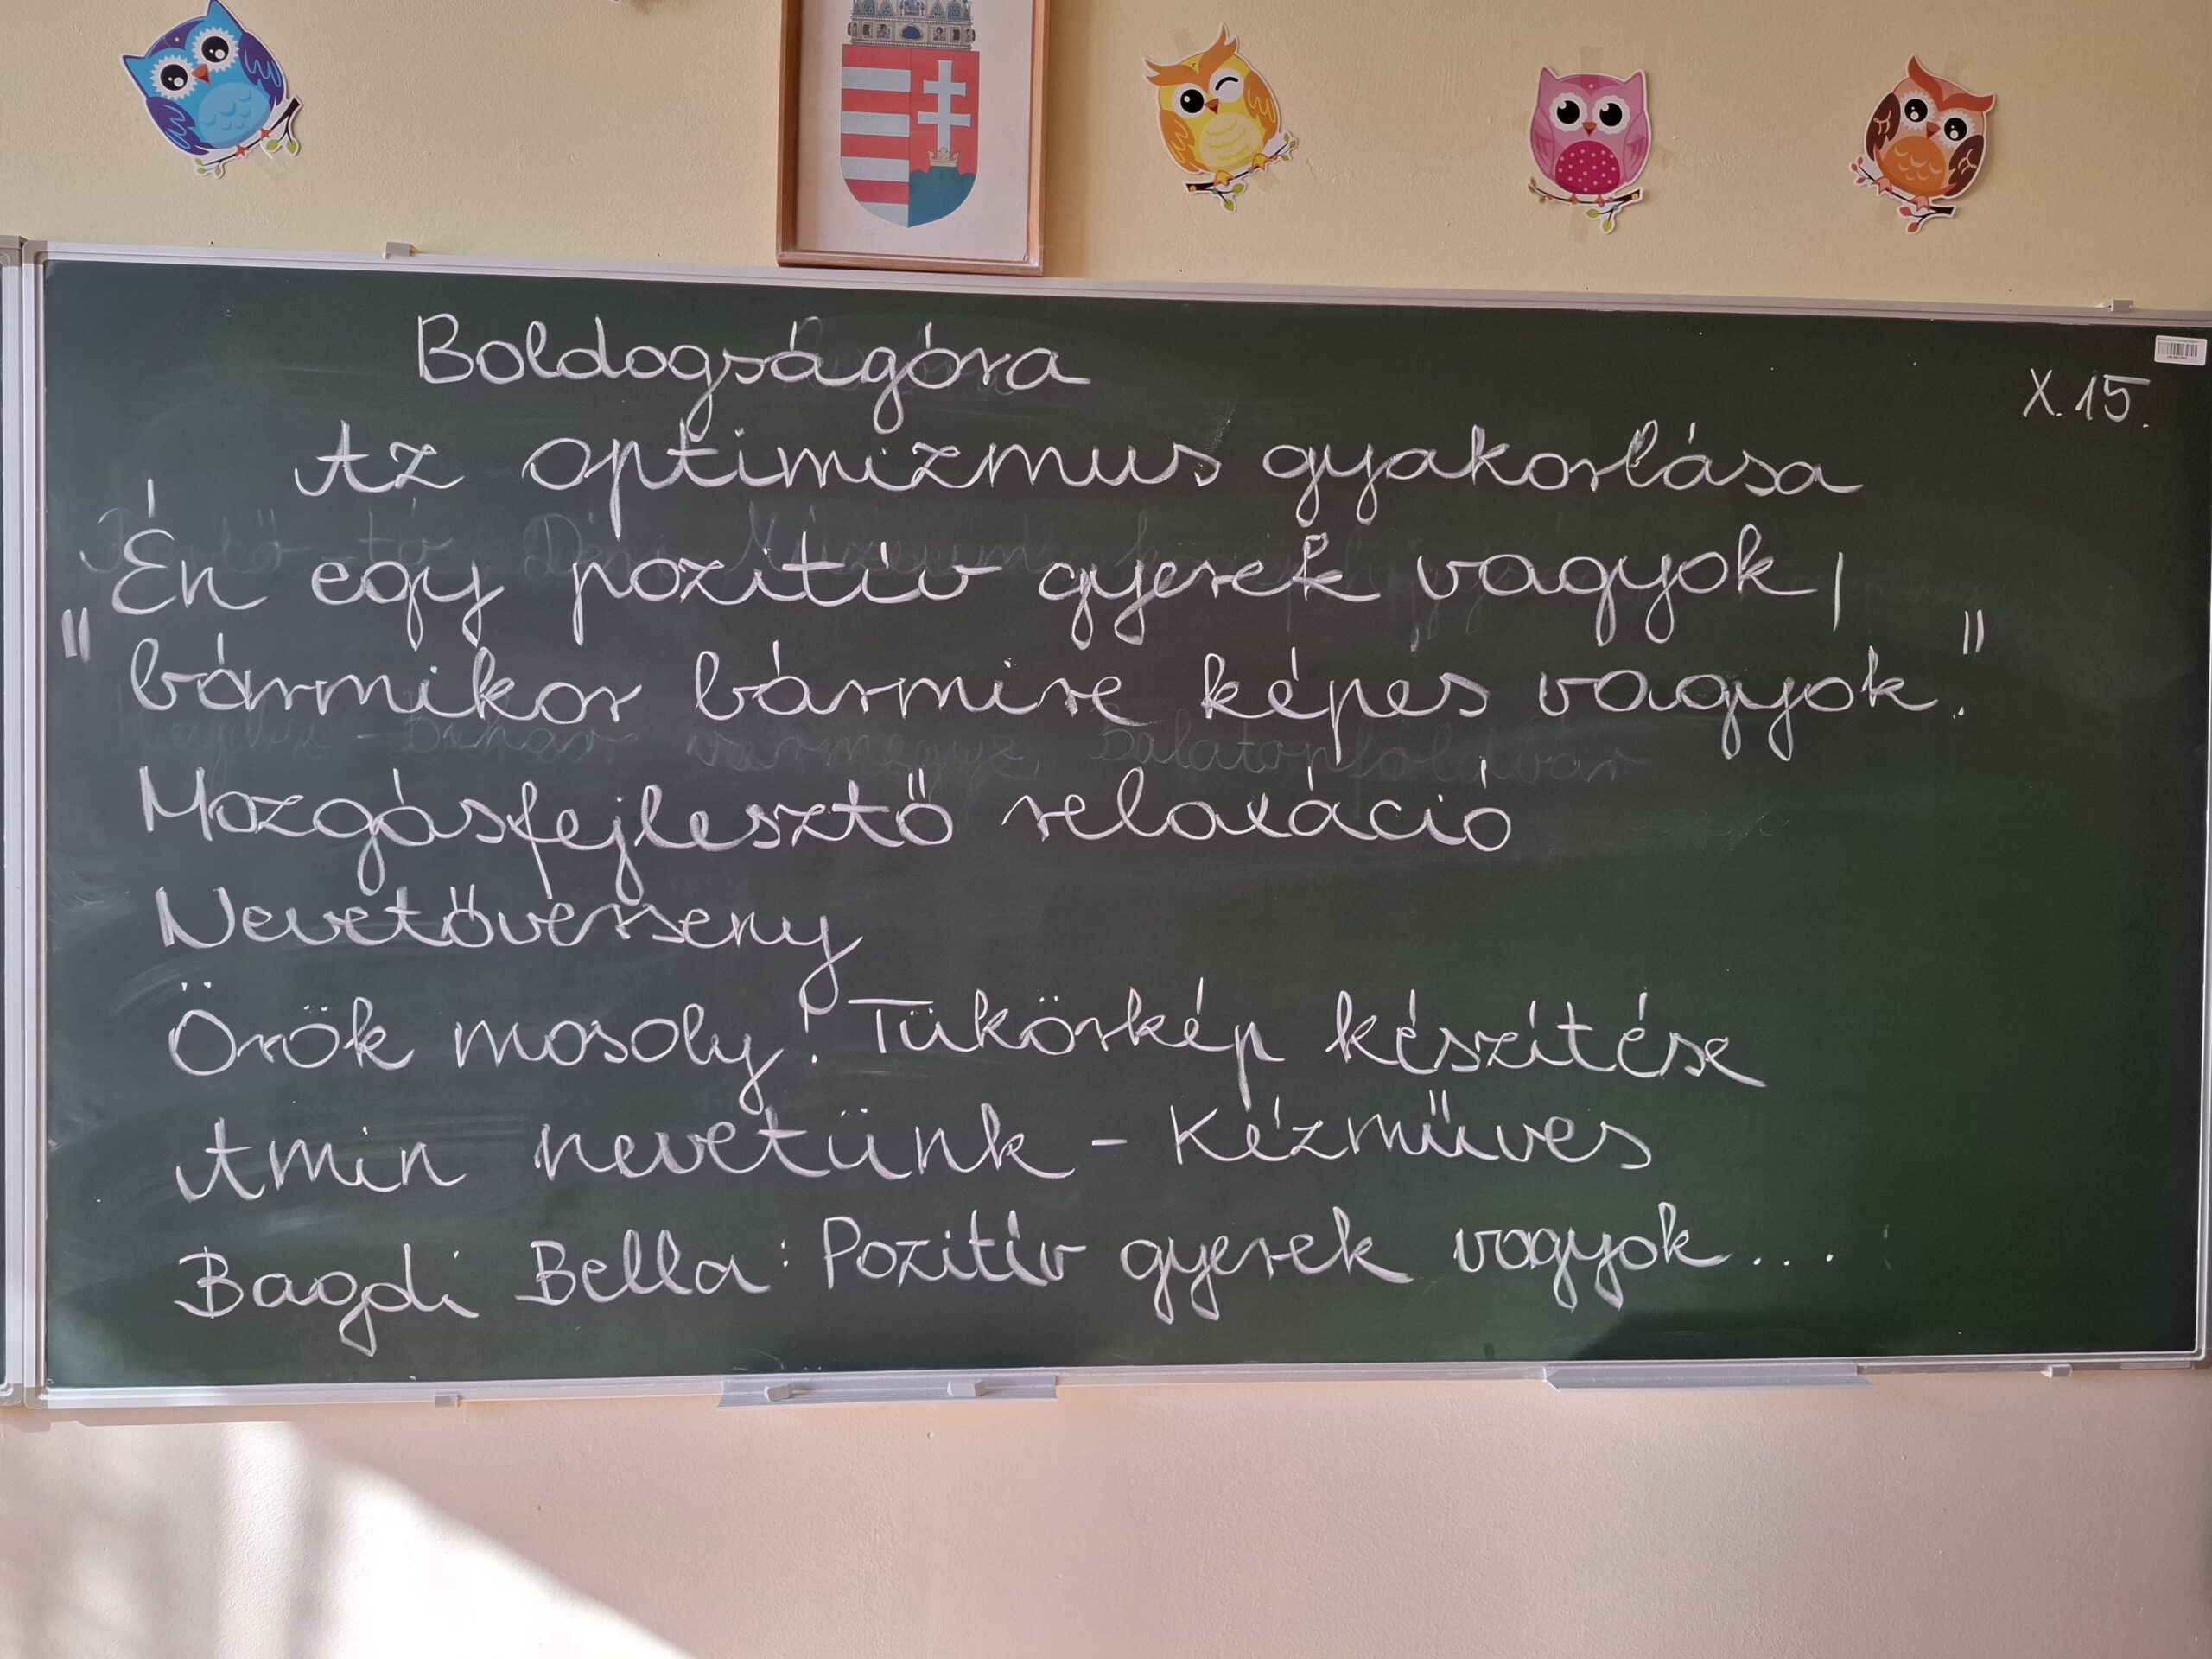 Boldogságóra
X. 15.
Az optimizmus gyakorlása
"Én egy pozitív gyerek vagyok,
bármikor bármire képes vagyok."
Mozgásfejlesztő relaxáció
Nevetőverseny
Örök mosoly! Tükörkép készítése
Amin nevetünk - Kézműves
Bagdi Bella: Pozitív gyerek vagyok...